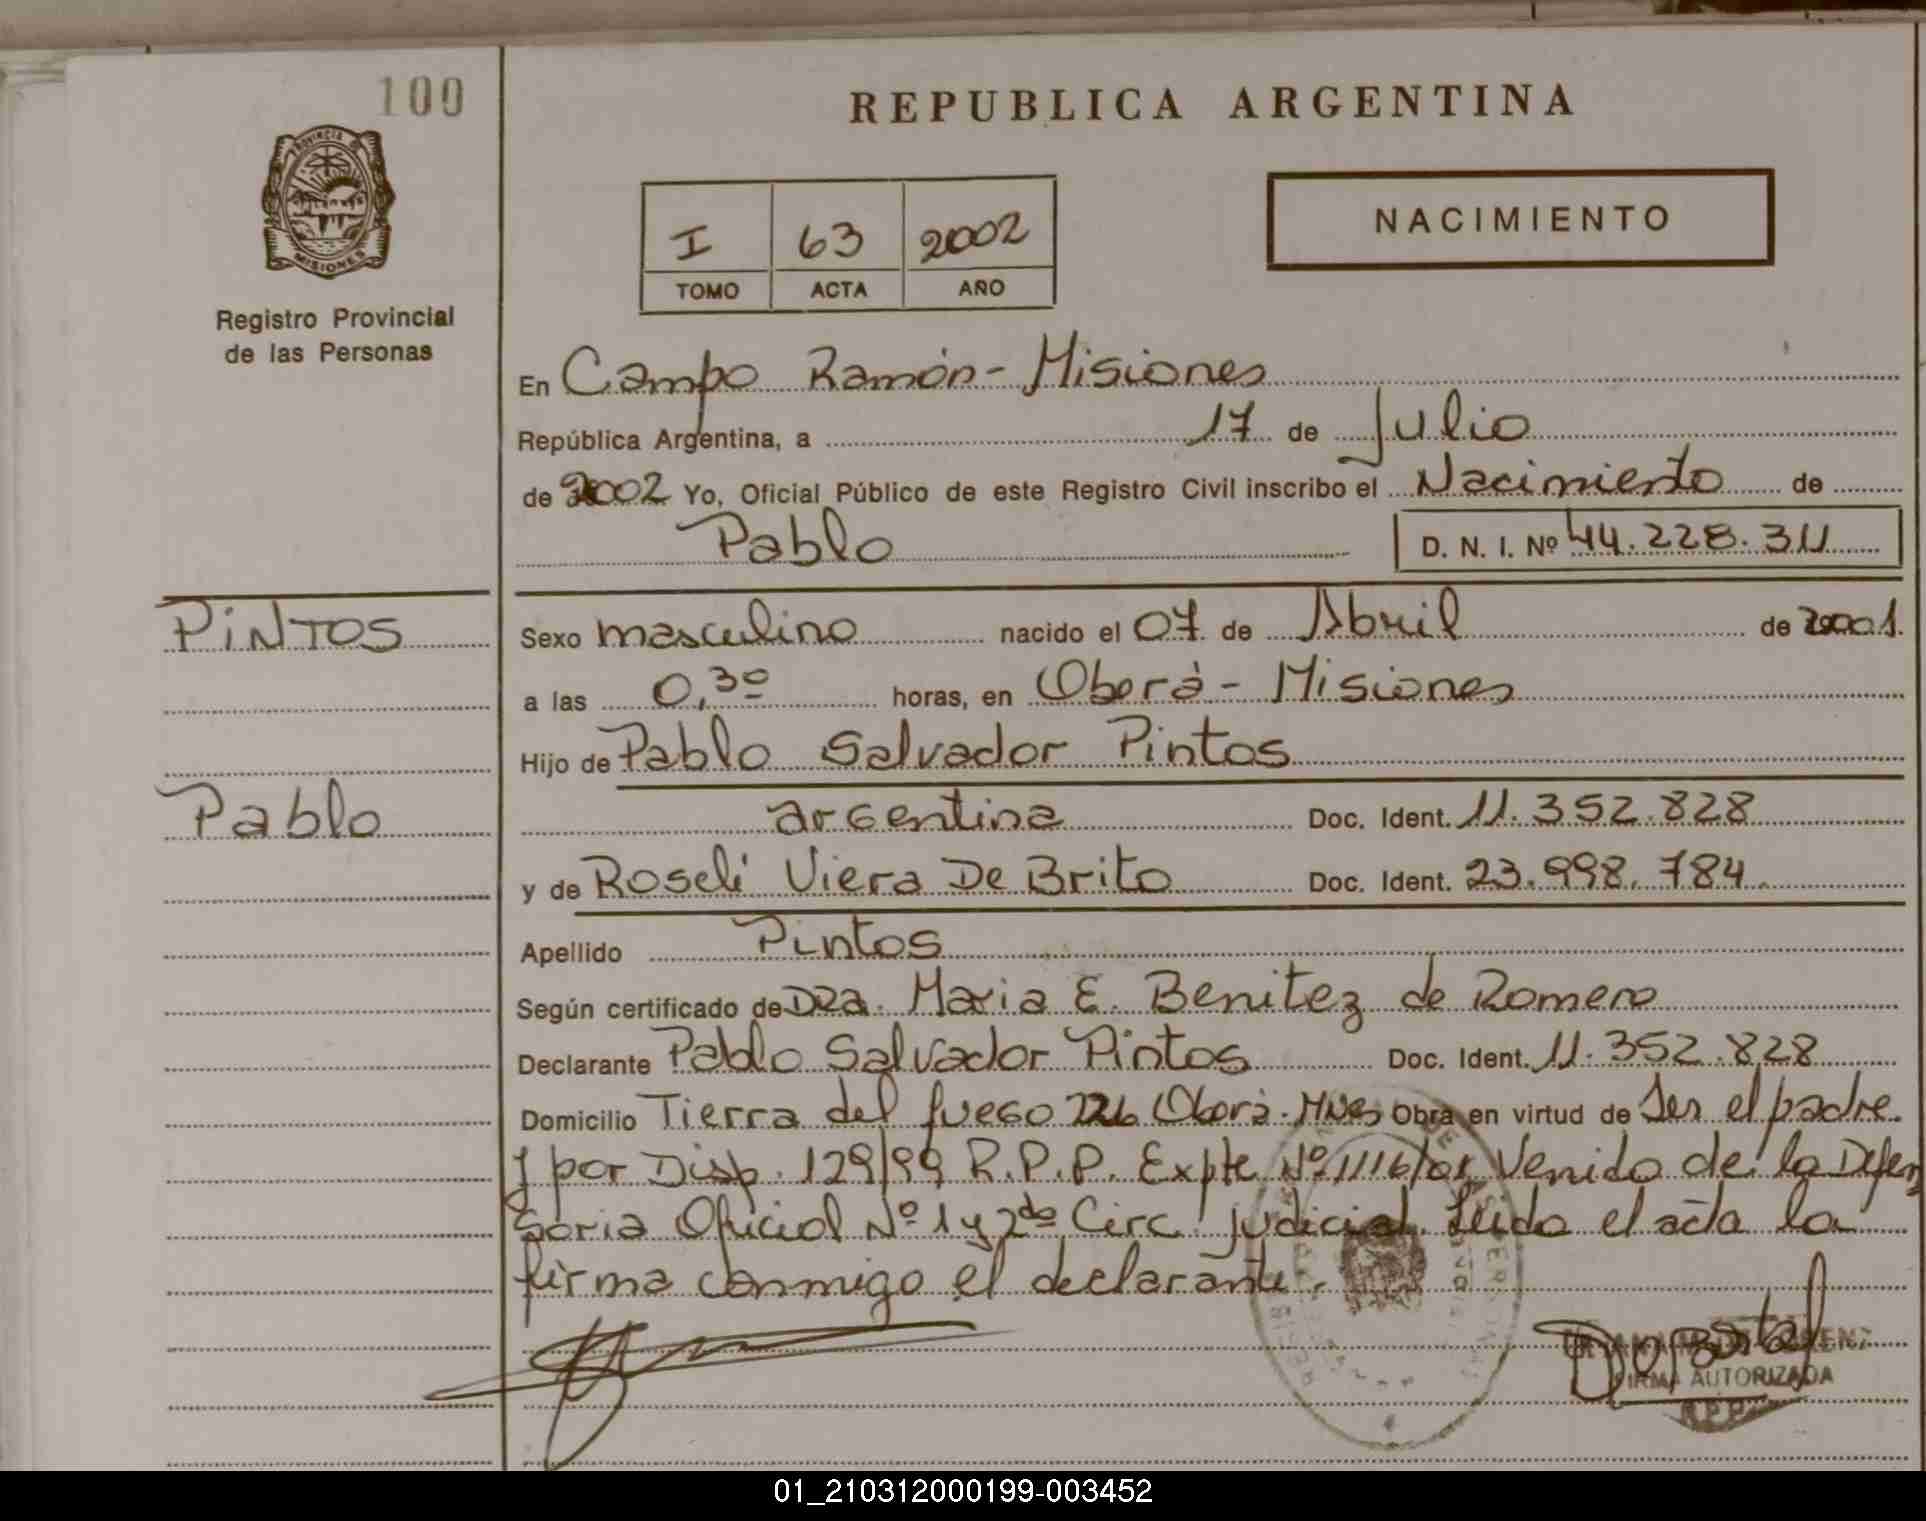 100
REPUBLICA ARGENTINA
PROVINCIA DE
MISIONES
Registro Provincial
de las Personas
I 63 2002
TOMO ACTA AÑO
NACIMIENTO
En Campo Ramón - Misiones
República Argentina, a 17 de Julio
de 2002 Yo, Oficial Público de este Registro Civil inscribo el Nacimiento de
Pablo D. N. I. Nº 44.228.311
PINTOS
Sexo masculino nacido el 07 de Abril de 2001.
a las 0,30 horas, en Oberá - Misiones
Hijo de Pablo Salvador Pintos
Pablo
argentina Doc. Ident. 11.352.828
y de Roseli Viera De Brito Doc. Ident. 23.998.784.
Apellido Pintos
Según certificado de Dra. Maria E. Benitez de Romero
Declarante Pablo Salvador Pintos Doc. Ident. 11.352.828
Domicilio Tierra del fuego 226 Oberá. Mnes Obra en virtud de Ser el padre.
y por Disp. 129/99 R.P.P. Expte Nº 1116/01 Venido de la Defen
soria Oficial Nº 1 y 2da Circ. judicial. Leida el acta la
firma conmigo el declarante.
FIRMA AUTORIZADA
01_210312000199-003452